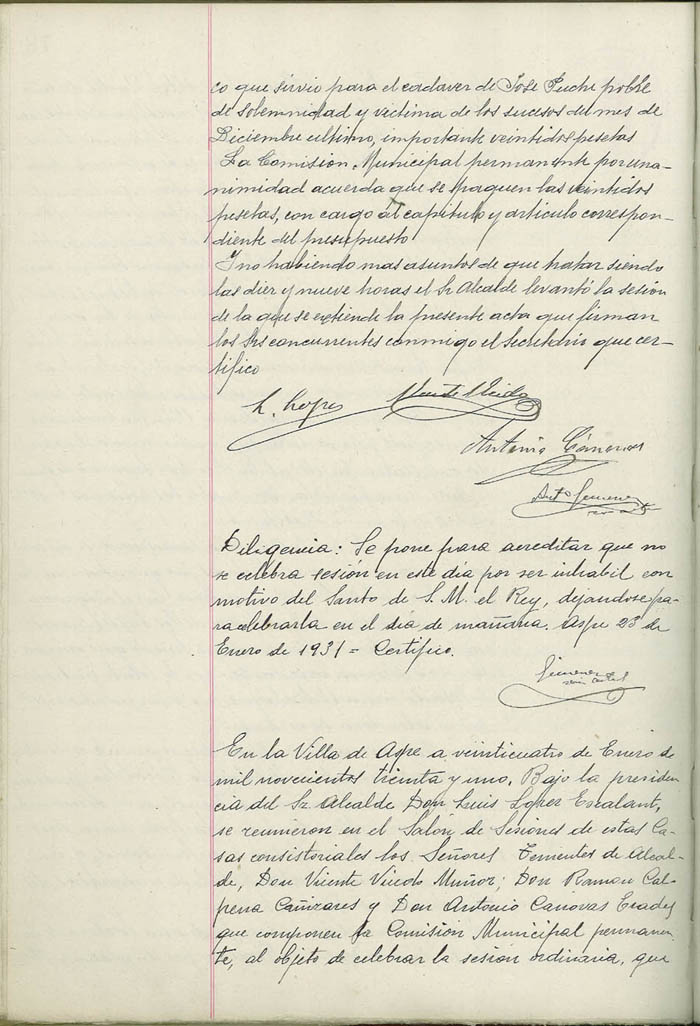 co que sirvio para el cadaver de Jose Puche pobre
de solemnidad y victima de los sucesos del mes de
Diciembre ultimo, importante veintidos pesetas
La Comision Municipal permanente por una-
nimidad acuerda que se paguen las veintidos
pesetas, con cargo al capitulo y articulo correspon-
diente del presupuesto
Y no habiendo mas asuntos de que tratar siendo
las diez y nueve horas el Sr Alcalde levantó la sesión
de la que se extiende la presente acta que firman
los Srs concurrentes conmigo el Secretario que cer-
tifico
L. Lopez
Antonio Cánovas
Anto Gimenez
Diligencia: Se pone para acreditar que no
se celebra sesión en este día por ser inhabil con
motivo del Santo de S. M. el Rey, dejandose pa-
ra celebrarla en el día de mañana. Aspe 23 de
Enero de 1931 = Certifico.
Gimenez
En la Villa de Aspe a veinticuatro de Enero de
mil novecientos treinta y uno. Bajo la presiden
cia del Sr Alcalde Don Luis Lopez Escalant,
se reunieron en el Salón de Sesiones de estas Ca-
sas consistoriales los Señores Tenientes de Alcal-
de, Don Vicente Viudo Muñoz; Don Ramon Cal-
pena Cañizares y Don Antonio Canovas
que componen la Comisión Municipal permanen
te, al objeto de celebrar la sesión ordinaria, que